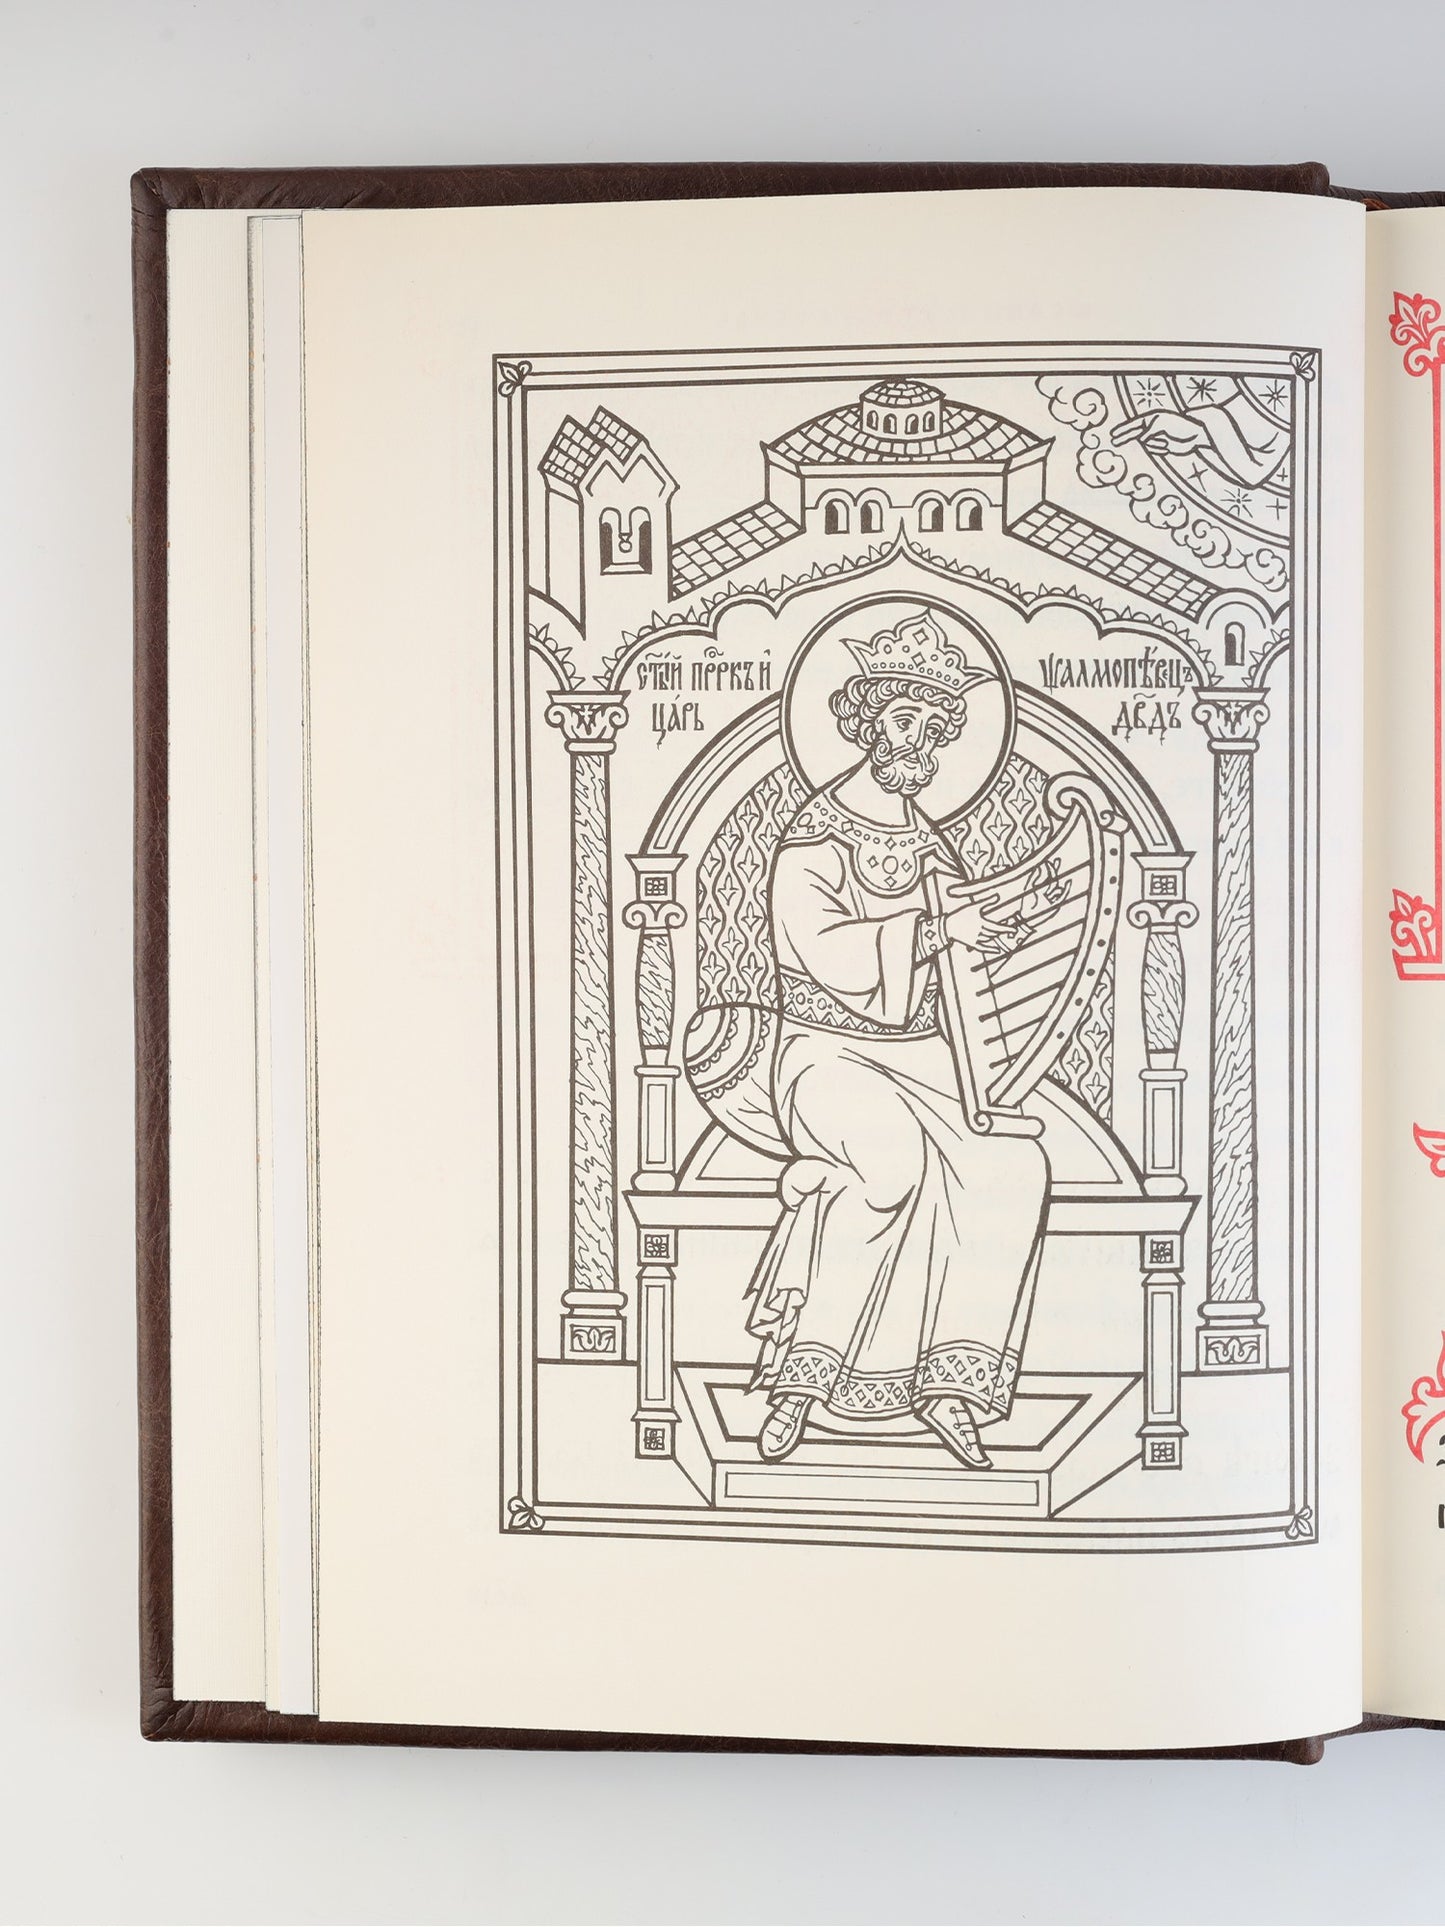 ст҃ы́й прⷪ҇ркъ и҆
ца́рь
ѱалмопѣ́вецъ
дв҃дъ